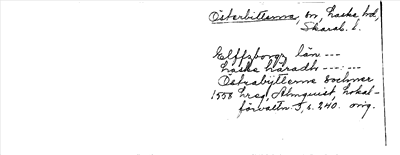 Österbitterna, sn, Laske hd,
Skarab. l.
Elffzborgz län ---
Laske häradh --- ---
Östrabÿtterne Sochner
1558 hreg, Almquist, Lokal-
förvaltn. 3, s. 240. orig.